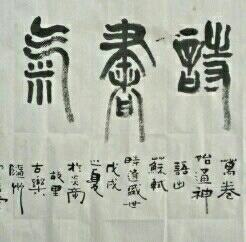 詩書氣
萬卷
始通神
語出
蘇軾
時逢盛世
戊戌
之夏
於炎帝
故里
古樂
隨州